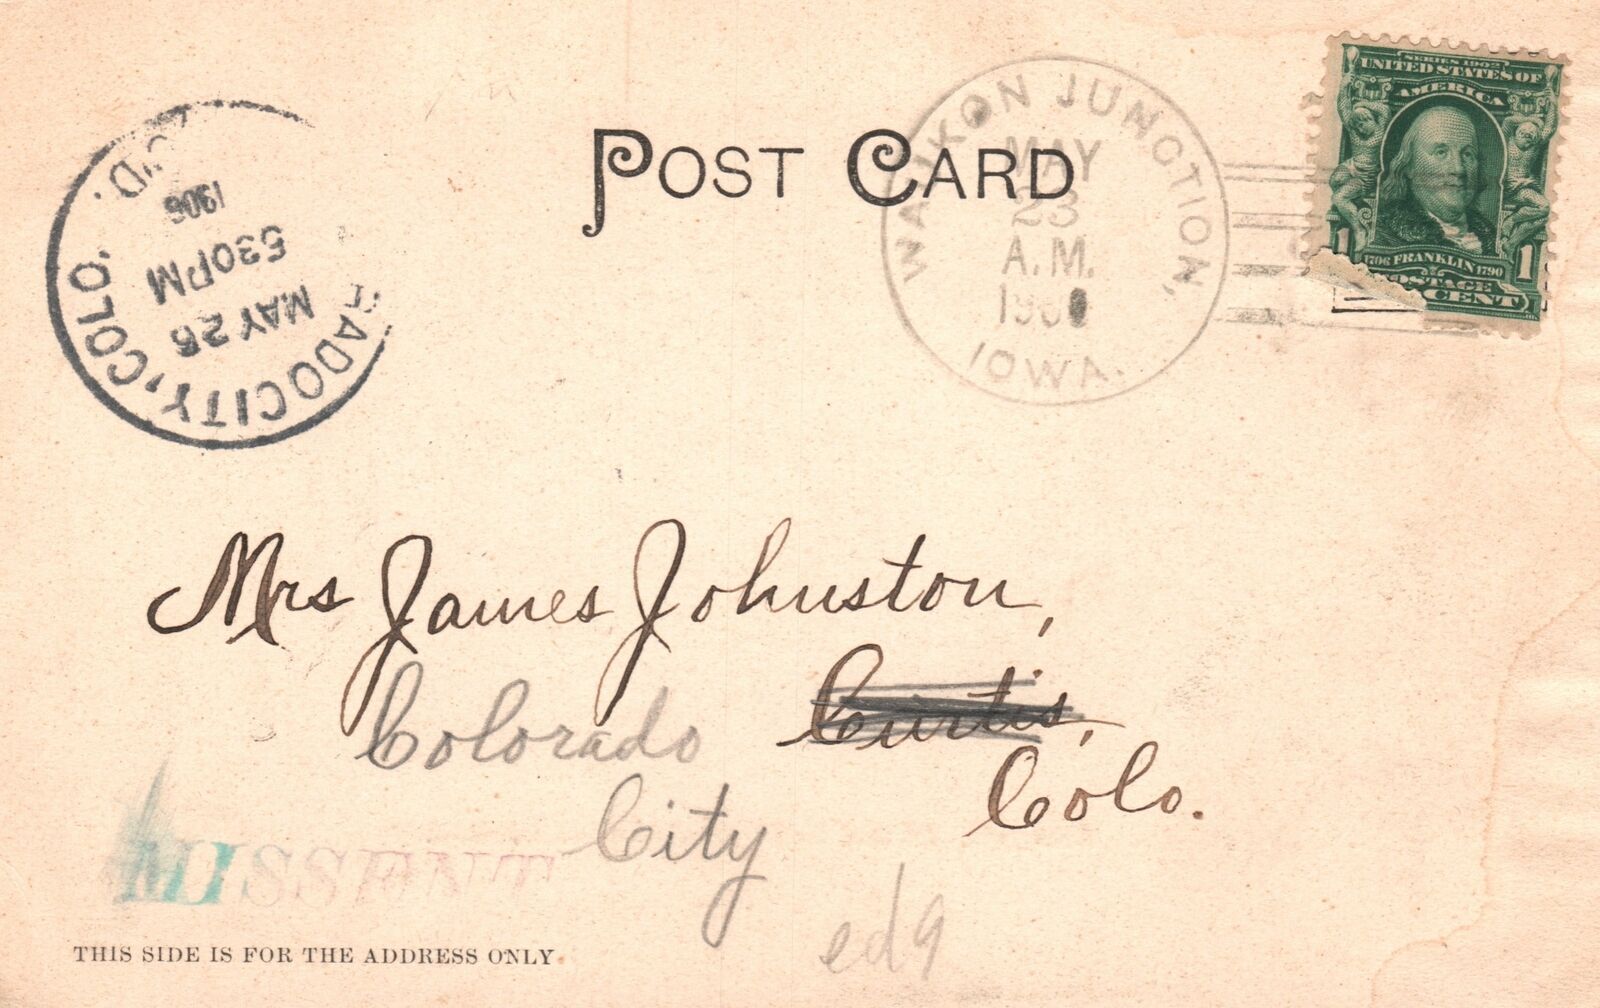 POST CARD
WAUKON JUNCTION,
MAY
23
A.M.
IOWA.
SERIES 1902
UNITED STATES OF
AMERICA
1706 FRANKLIN 1790
1 1
POSTAGE
CENT
REC'D.
1906
530PM
MAY 26
RADO CITY, COLO.
Mrs James Johnston,
Curtis,
Colorado
Colo.
City
MISSENT
ed9
THIS SIDE IS FOR THE ADDRESS ONLY